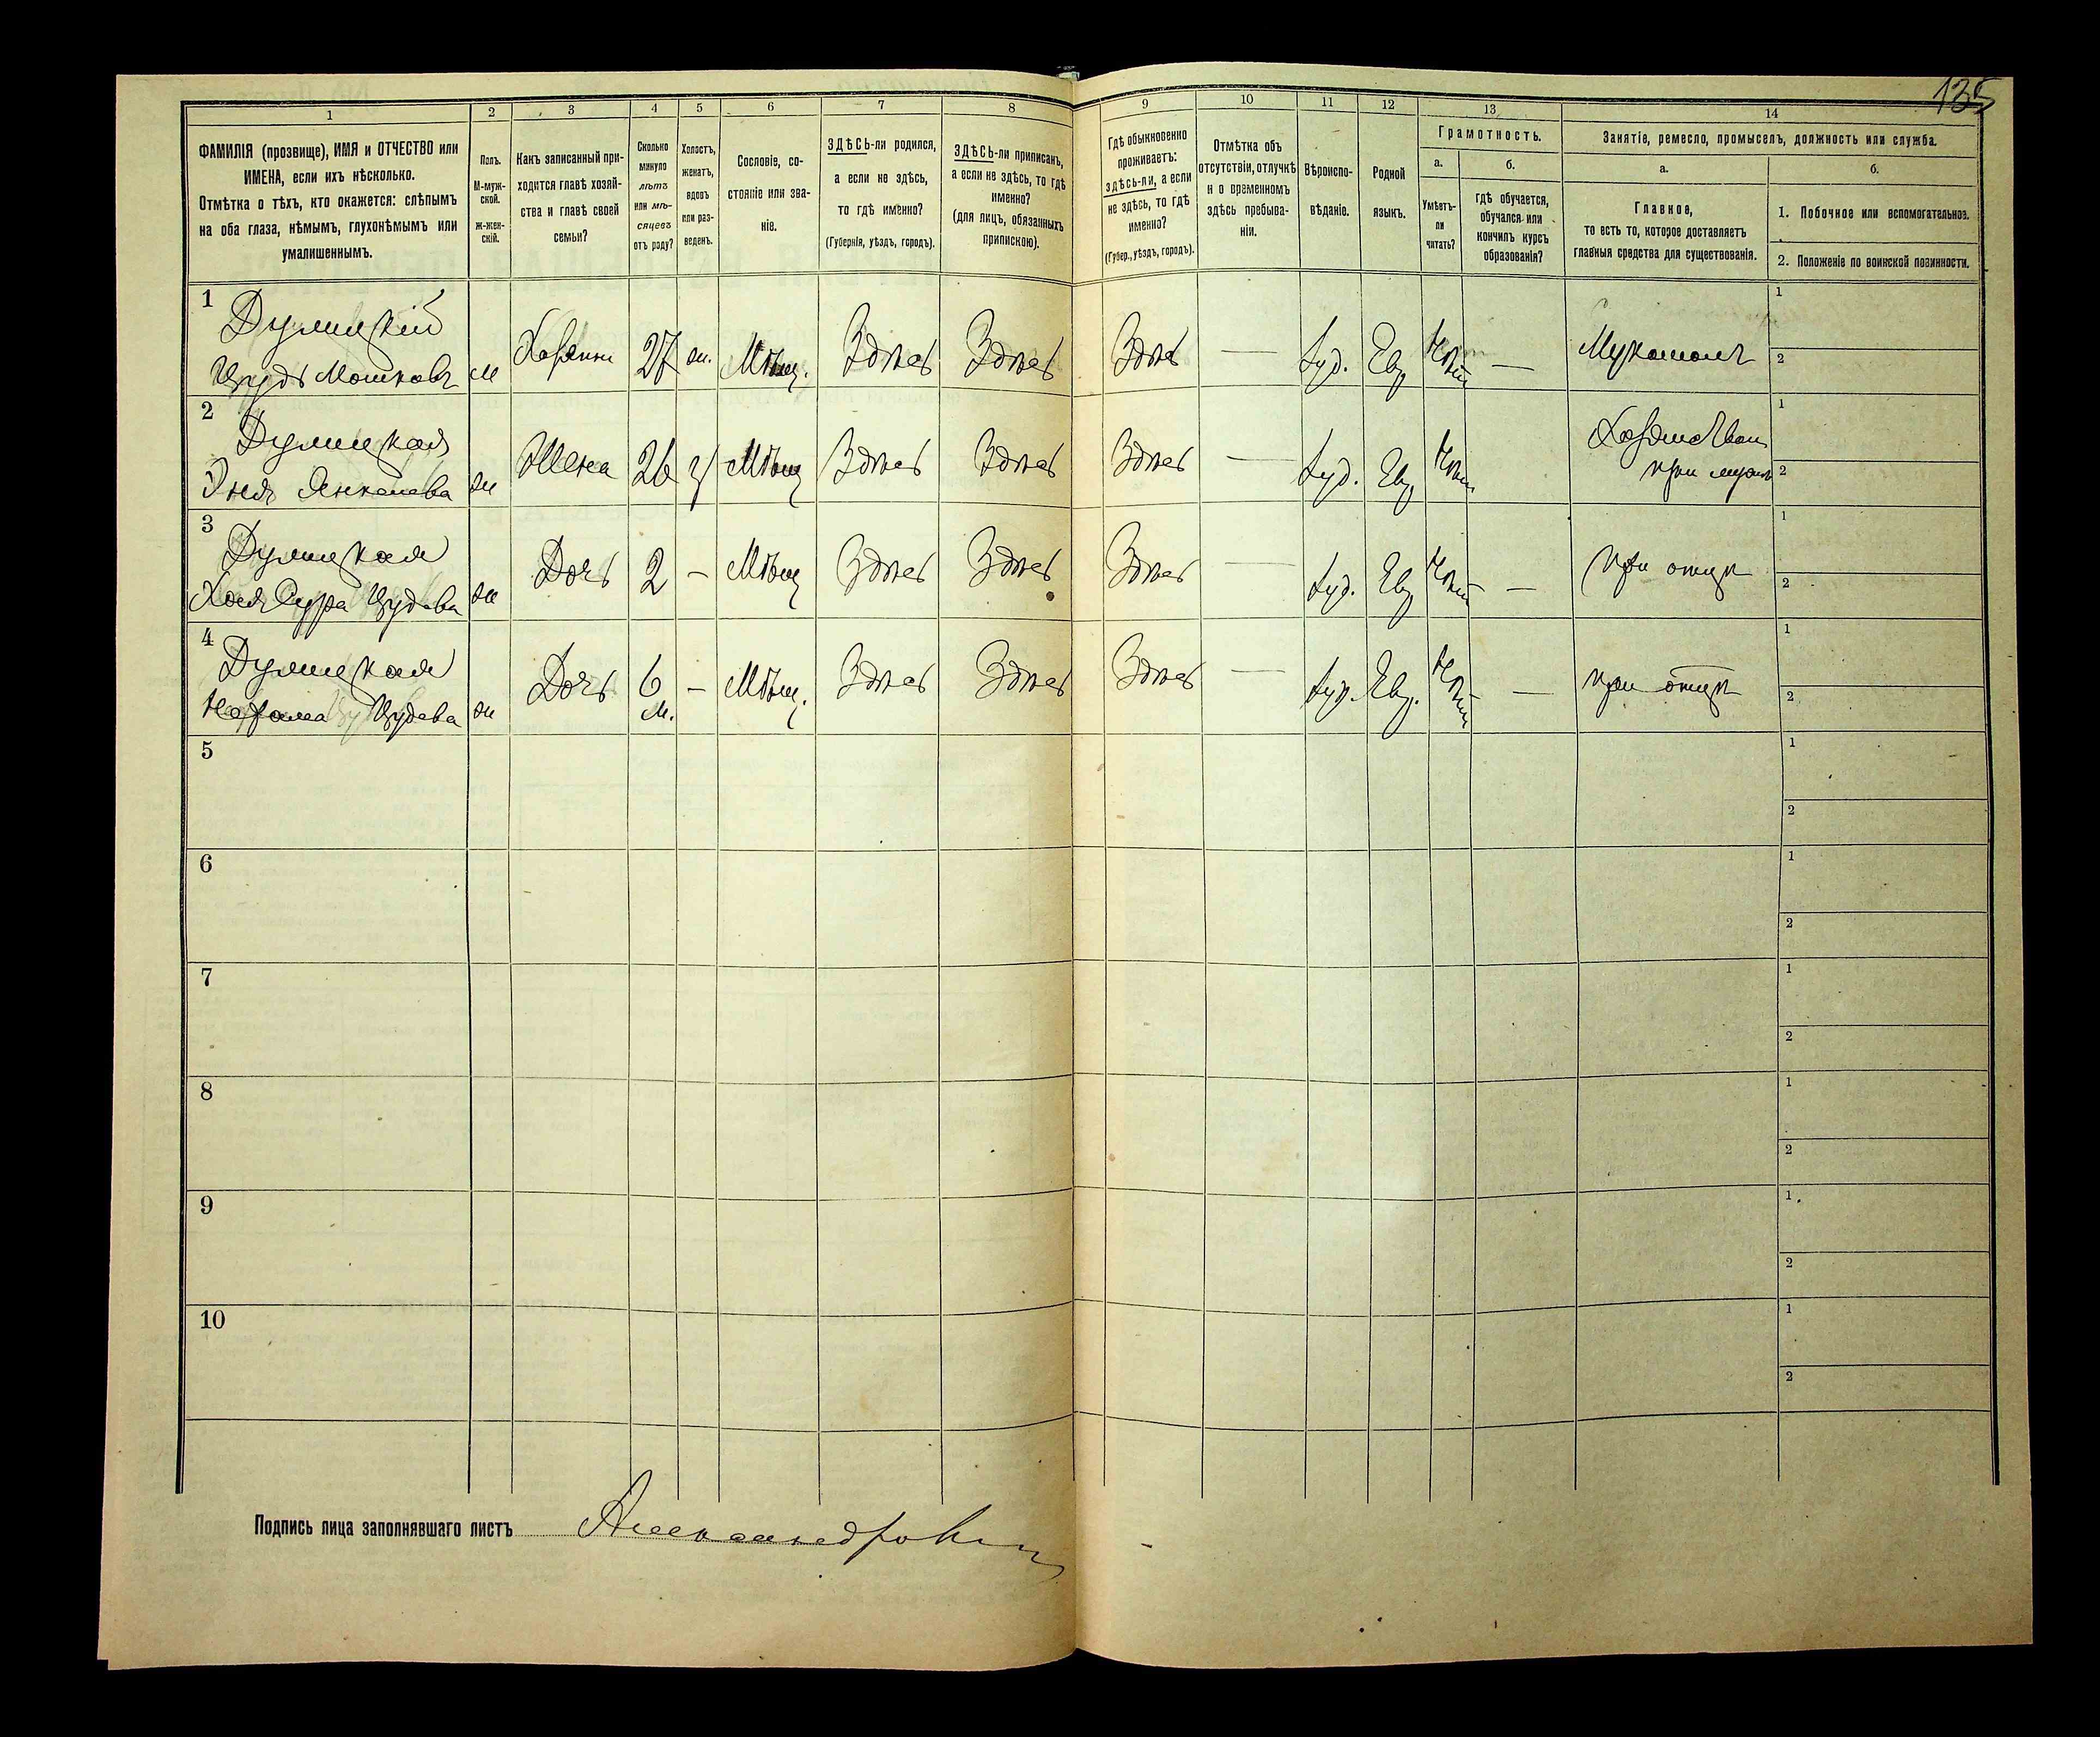 135
1
2
3
4
5
6
7
8
9
10
11
12
13
14
ФАМИЛІЯ (прозвище), ИМЯ и ОТЧЕСТВО или
ИМЕНА, если ихъ нѣсколько.
Отмѣтка о тѣхъ, кто окажется: слѣпымъ
на оба глаза, нѣмымъ, глухонѣмымъ или
умалишеннымъ.
Полъ.
М-муж-
ской.
ж-жен-
скій.
Какъ записанный при-
ходится главѣ хозяй-
ства и главѣ своей
семьи?
Сколько
минуло
лѣтъ
или мѣ-
сяцевъ
отъ роду?
Холостъ,
женатъ,
вдовъ
или раз-
веденъ.
Сословіе, со-
стояніе или зва-
ніе.
ЗДѢСЬ-ли родился,
а если не здѣсь,
то гдѣ именно?
(Губернія, уѣздъ, городъ).
ЗДѢСЬ-ли приписанъ,
а если не здѣсь, то гдѣ
именно?
(для лицъ, обязанныхъ
припискою).
Гдѣ обыкновенно
проживаетъ:
здѣсь-ли, а если
не здѣсь, то гдѣ
именно?
(Губер., уѣздъ, городъ).
Отмѣтка объ
отсутствіи, отлучкѣ
и о временномъ
здѣсь пребыва-
ніи.
Вѣроиспо-
вѣданіе.
Родной
языкъ.
Грамотность.
а.
б.
Умѣетъ-
ли
читать?
гдѣ обучается,
обучался или
кончилъ курсъ
образованія?
Занятіе, ремесло, промыселъ, должность или служба.
а.
б.
Главное,
то есть то, которое доставляетъ
главныя средства для существованія.
1. Побочное или вспомогательное.
2. Положеніе по воинской повинности.
1
Дулицкій
Мошковъ м Хозяинъ 27 ж. Мѣщ. Здѣсь Здѣсь Здѣсь — Іуд. Евр. Нѣт — Мукомолъ
1
2
2
Дулицкая
Янкелева ж Жена 26 з Мѣщ Здѣсь Здѣсь Здѣсь — Іуд. Евр Нѣт
при мужѣ
1
2
3
Дулицкая
Хая Сура Иудева ж Дочь 2 — Мѣщ Здѣсь Здѣсь Здѣсь — Іуд. Евр Нѣт — при отцѣ
1
2
4
Дулицкая
Нехама Иудева ж Дочь 6 м. — Мѣщ. Здѣсь Здѣсь Здѣсь — Іуд. Евр. Нѣт — при отцѣ
1
2
5
1
2
6
1
2
7
1
2
8
1
2
9
1
2
10
1
2
Подпись лица заполнявшаго листъ